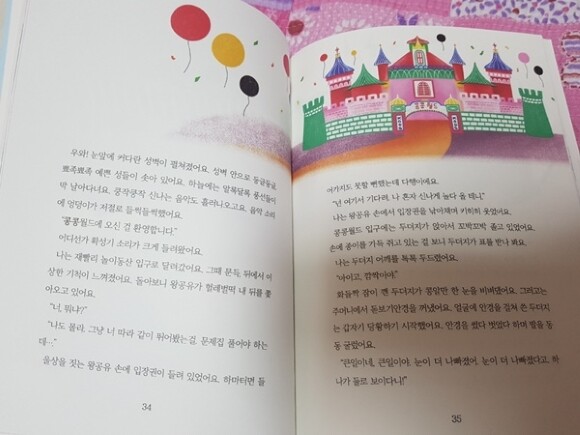 우와! 눈앞에 커다란 성벽이 펼쳐졌어요. 성벽 안으로 둥글둥글,
뾰족뾰족 예쁜 성들이 솟아 있어요. 하늘에는 알록달록 풍선들이
막 날아다녀요. 쿵작쿵작 신나는 음악도 흘러나오고요. 음악 소리
에 엉덩이가 저절로 들썩들썩했어요.
"콩콩월드에 오신 걸 환영합니다."
어디선가 확성기 소리가 크게 들려왔어요.
나는 재빨리 놀이동산 입구로 달려갔어요. 그때 문득, 뒤에서 이
상한 기척이 느껴졌어요. 돌아보니 왕공유가 헐레벌떡 내 뒤를 쫓
아오고 있어요.
"너, 뭐냐?"
"나도 몰라. 그냥 너 따라 같이 뛰어봤는걸. 문제집 풀어야 하는
데…."
울상을 짓는 왕공유 손에 입장권이 들려 있었어요. 하마터면 들
34
어가지도 못할 뻔했는데 다행이에요.
"넌 여기서 기다려. 나 혼자 신나게 놀다 올 테니."
나는 왕공유 손에서 입장권을 낚아채며 키히히 웃었어요.
콩콩월드 입구에는 두더지가 앉아서 꼬박꼬박 졸고 있었어요.
손에 종이를 가득 쥐고 있는 걸 보니 두더지가 표를 받나 봐요.
나는 두더지 어깨를 톡톡 두드렸어요.
"아이고, 깜짝이야!"
화들짝 잠이 깬 두더지가 콩알만 한 눈을 비벼댔어요. 그러고는
주머니에서 돋보기안경을 꺼냈어요. 얼굴에 안경을 걸쳐 쓴 두더지
는 갑자기 당황하기 시작했어요. 안경을 썼다 벗었다 하며 발을 동
동 굴렀어요.
"큰일이네, 큰일이야. 눈이 더 나빠졌어. 눈이 더 나빠졌다고. 하
나가 둘로 보이다니!"
35